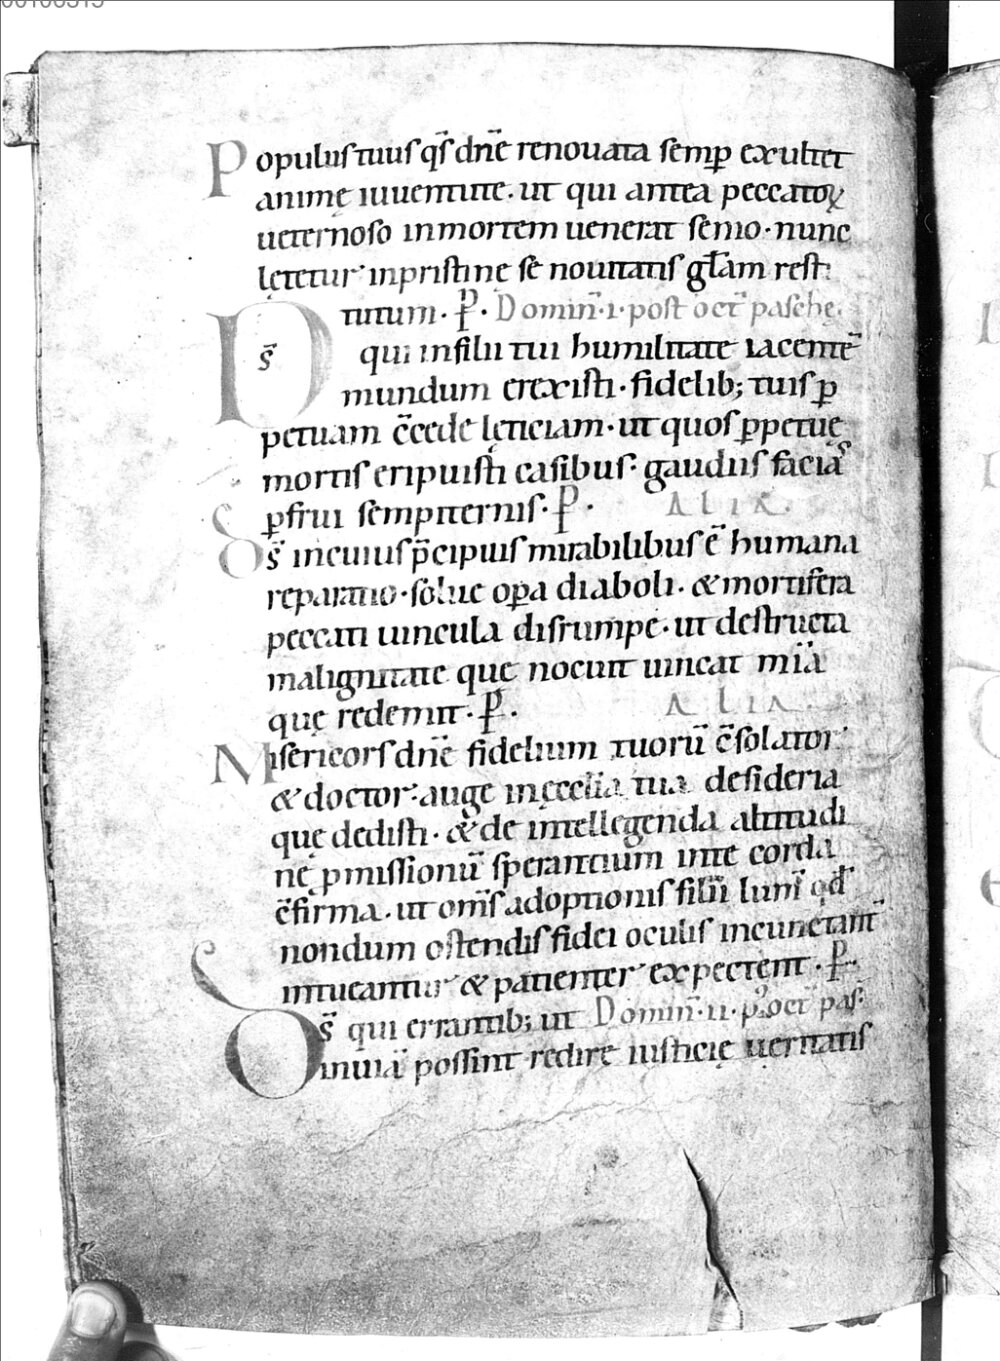 Populus tuus qs̄ dn̄e renouata semp̄ exultet
animę iuuentute. ut qui antea peccatoꝝ
ueternoso inmortem uenerat senio. nunc
lętetur inpristinę se nouitatis gl̄am resti
tutum. P. Domiñ. i. post oct̄ paschę.
Ds̄ qui infilii tui humilitate iacentē
mundum erexisti. fidelib; tuis ꝑ
petuam c̄cede lęticiam. ut quos ꝑpetuę
mortis eripuisti casibus. gaudiis facias
ꝑfrui sempiternis. P. ALIA.
Ds̄ incuius p̄cipuis mirabilibus ē humana
reparatio. solue oꝑa diaboli. & mortifera
peccati uincula disrumpe. ut destructa
malignitate que nocuit uincat mīa
quę redemit. P. ALIA.
Misericors dn̄e fidelium tuorū c̄solator
& doctor. auge inęcclīa tua desideria
quę dedisti. & de intellegenda altitudi
nę ꝓmissionū sperantium in te corda
c̄firma. ut om̄s adoptionis filii tui qd̄
nondum ostendis fidei oculis incunctant̄
intueantur & patienter expectent. P.
Ds̄ qui errantib; ut Domiñ. ii. p̓ oct̄ pas.
inuiā possint redire iusticię ueritatis